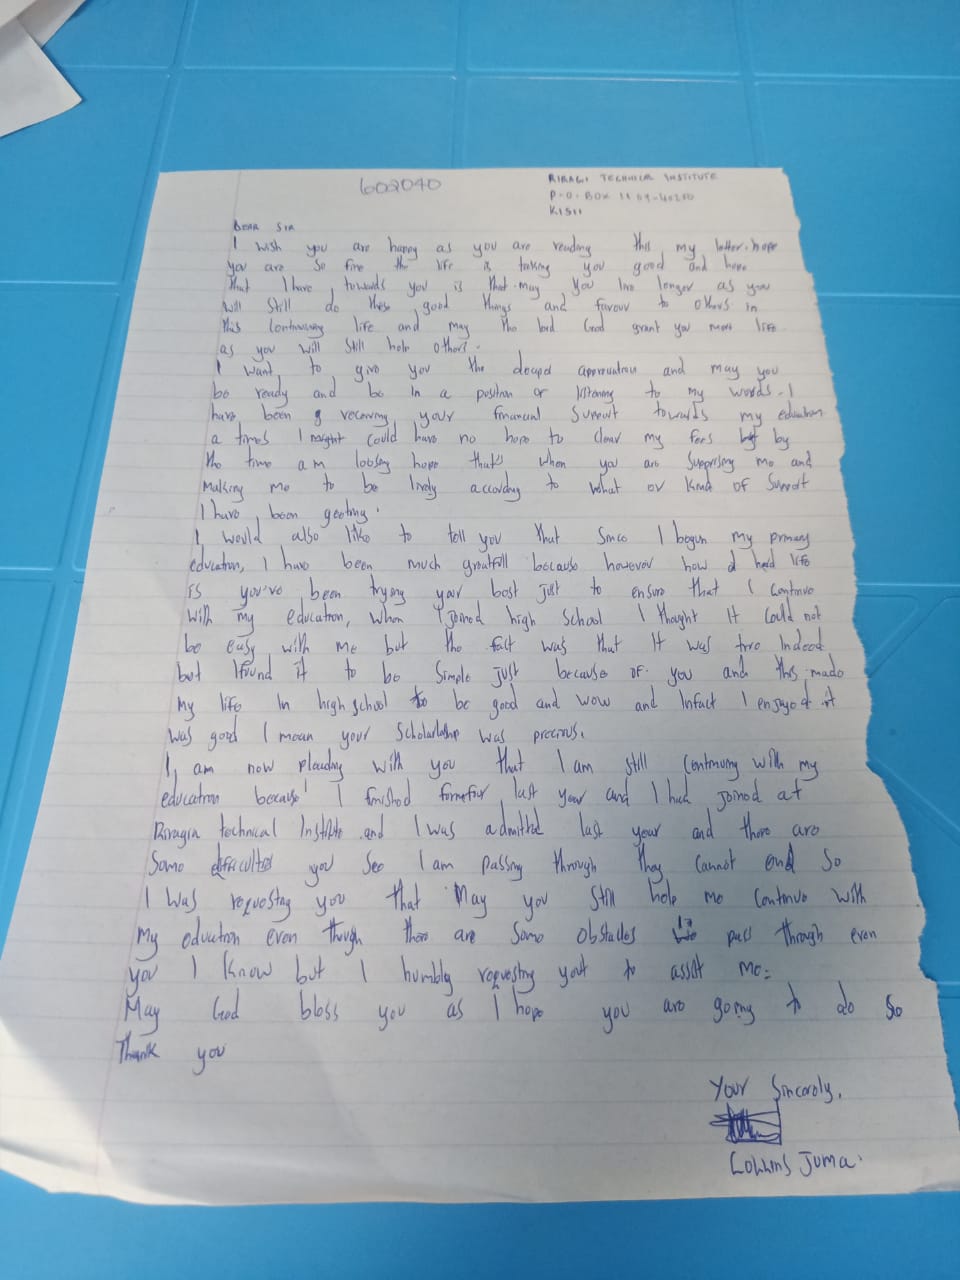 602040
RIRAGI TECHNICAL INSTITUTE
P.O. BOX 1109-40200
KISII
DEAR SIR
I wish you are happy as you are reading this my letter. hope
you are so fine the life is taking you good and hope
that I have towards you is that may you live longer as you
will still do these good things and favour to others in
this continuing life and may the lord God grant you more life
as you will still help others.
I want to give you the deeped appreciation and may you
be ready and be in a position or listening to my words. I
have been receiving your financial support towards my education
a times I might could have no hope to clear my fees by
the time am loosing hope that's when you are supprising me and
making me to be lively according to what or kind of support
I have been geeting.
I would also like to tell you that since I begun my primary
education, I have been much greatfull because however how hard life
is you've been trying your best just to ensure that I continue
with my education, when I joined high school I thought it could not
be easy with me but the fact was that it was true indeed
but I found it to be simple just because of you and this made
my life in high school to be good and wow and infact I enjoyed it
was good I mean your scholarship was precious.
I am now pleading with you that I am still continuing with my
education because I finished formfour last year and I had joined at
Riragia technical Institute and I was admitted last year and there are
some difficulties you see I am passing through they cannot end so
I was requesting you that may you still help me continue with
my education even though there are some obstacles pass through even
you I know but I humbly requesting you to assist me.
May God bless you as I hope you are going to do so
Thank you
Your Sincerely,
Collins Juma.